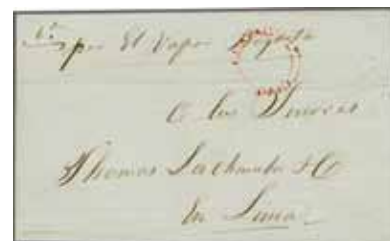 por El Vapor Bogotá
A los Señores
Thomas Lachambre & Co
En Lima